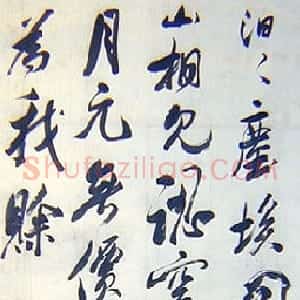 汩々塵埃
山相見
月元無價
為我賒
Shufaziliao.com